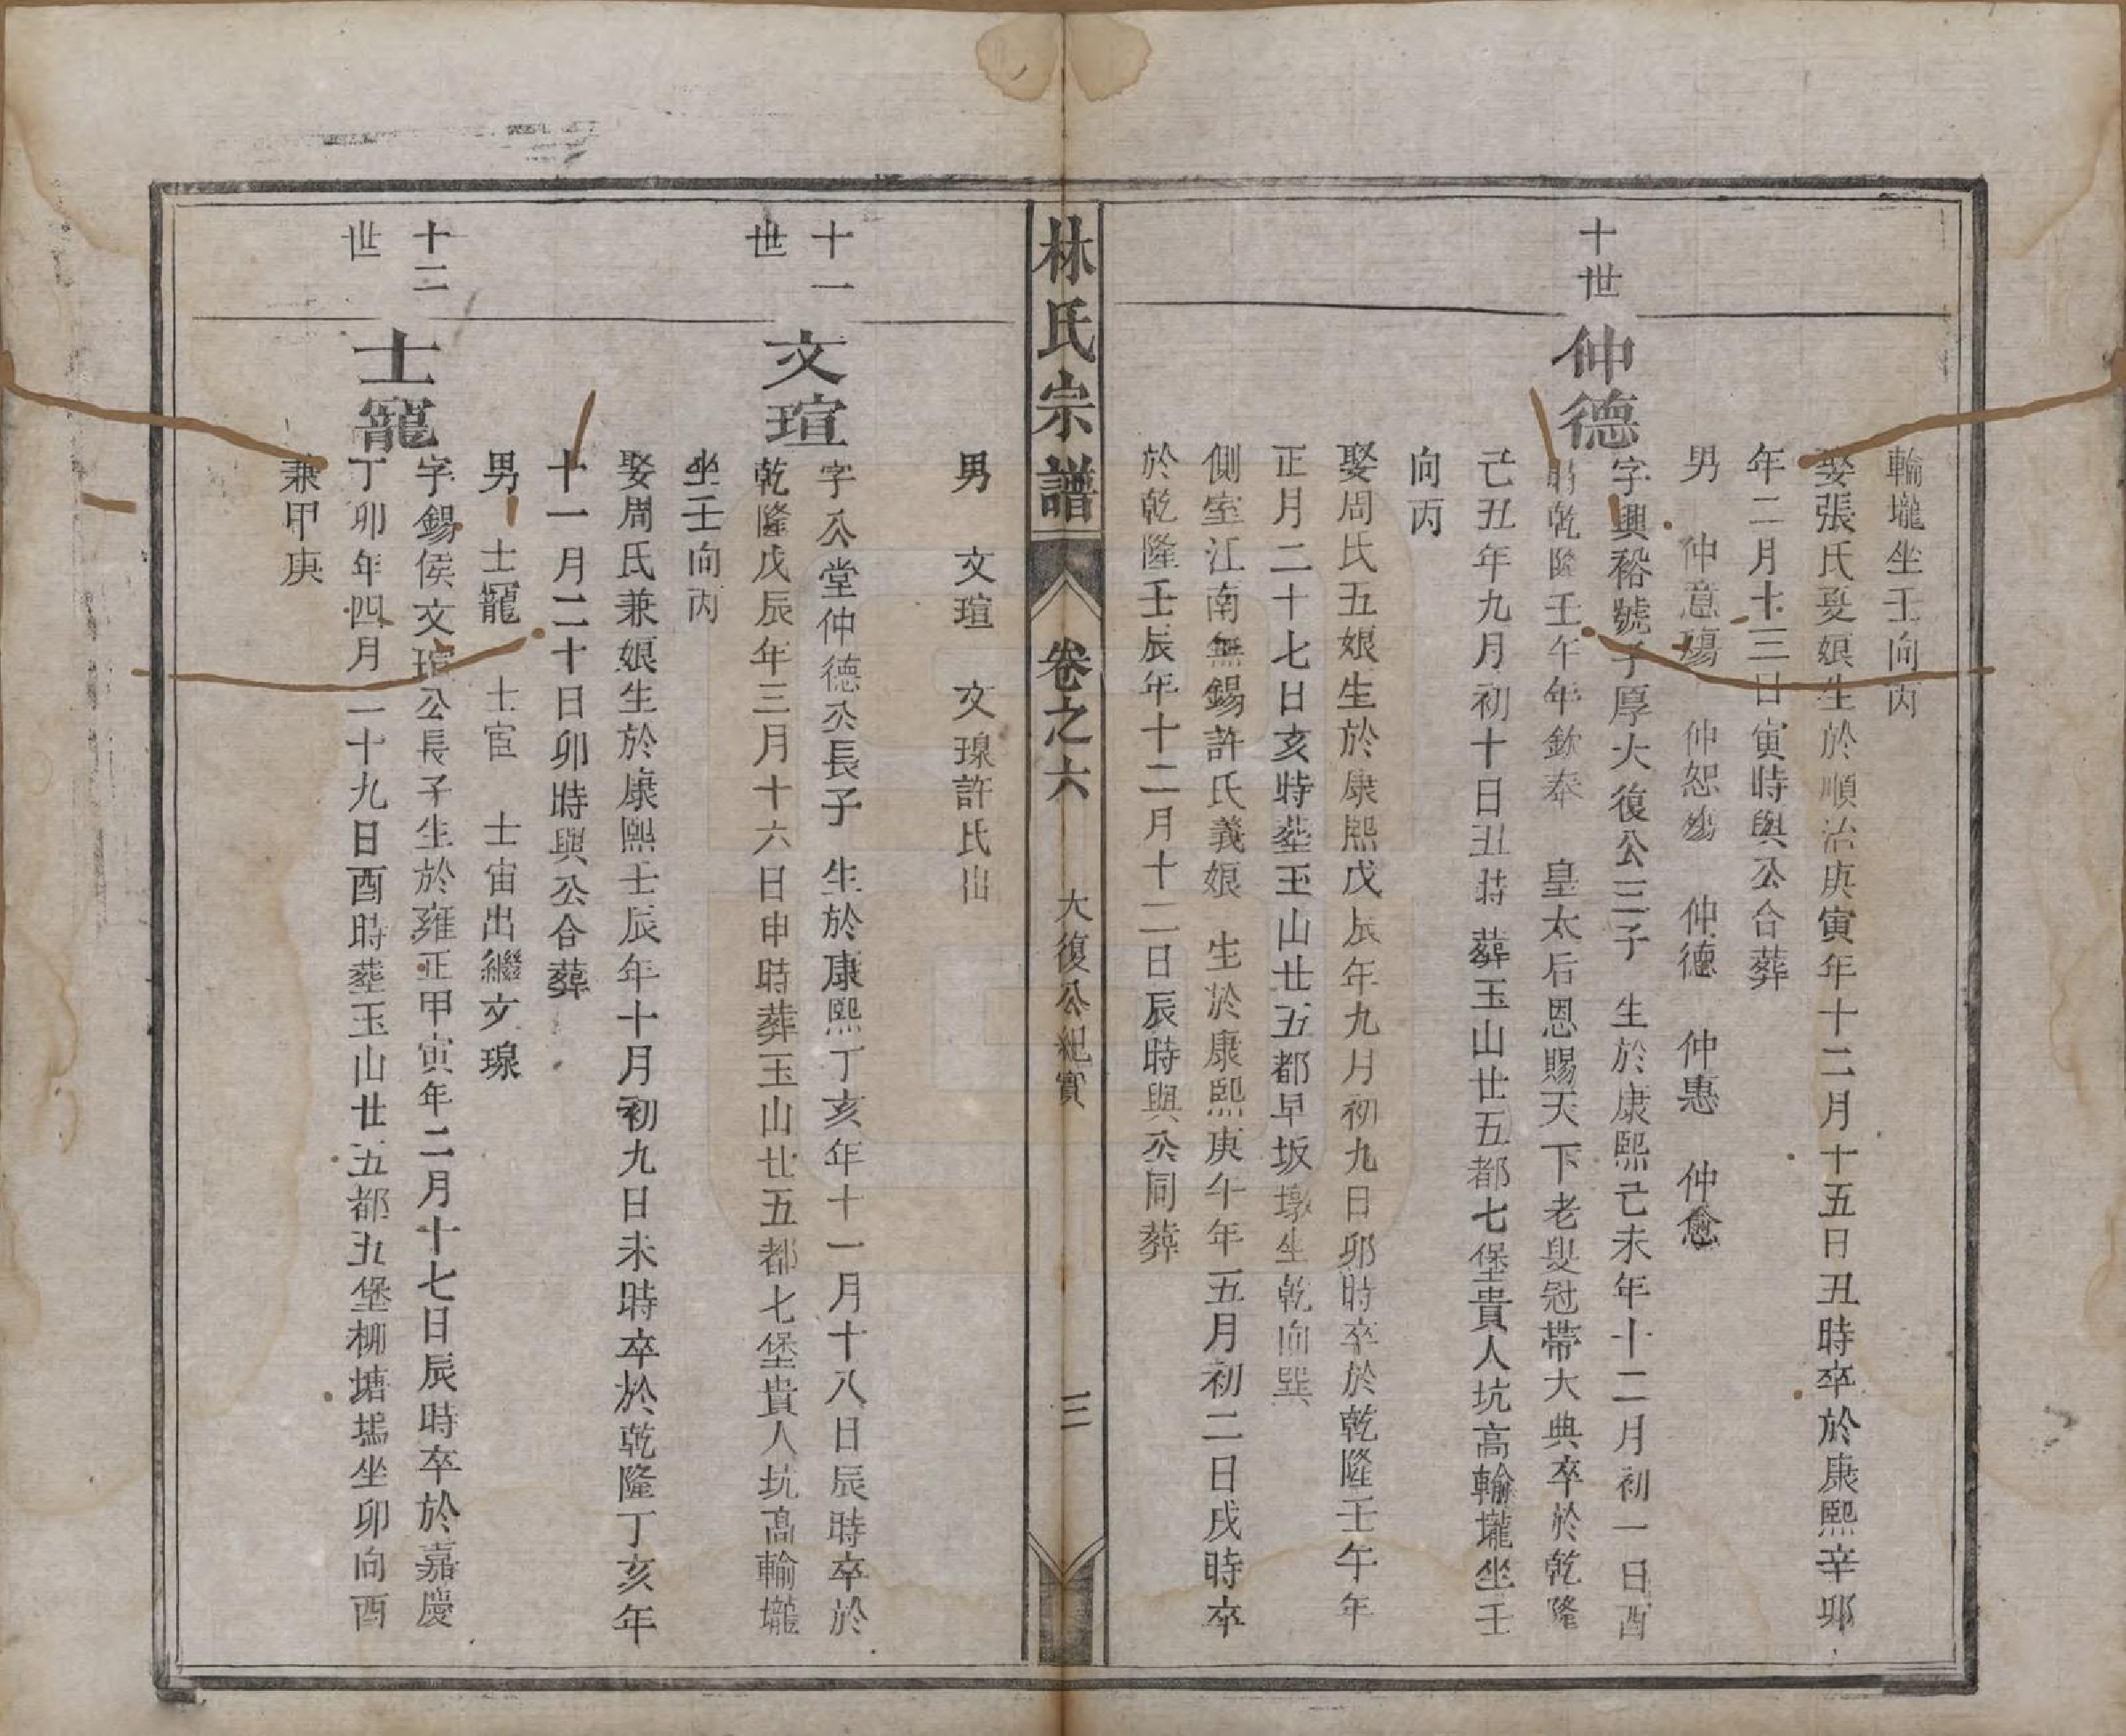 輪壠坐壬向丙
娶張氏夏娘生於順治庚寅年十二月十五日丑時卒於康熙辛卯
年二月十三日寅時與公合葬
男 仲意殤 仲恕殤 仲德 仲惠 仲愈
十世
仲德
字興裕號子厚大復公三子 生於康熙己未年十二月初一日酉
時乾隆壬午年欽奉 皇太后恩賜天下老叟冠帶大典卒於乾隆
己丑年九月初十日丑時 葬玉山廿五都七堡貴人坑高輪壠坐壬
向丙
娶周氏五娘生於康熙戊辰年九月初九日卯時卒於乾隆壬午年
正月二十七日亥時塟玉山廿五都早坂墩坐乾向巽
側室江南無錫許氏義娘 生於康熙庚午年五月初二日戌時卒
於乾隆壬辰年十二月十二日辰時與公同葬
林氏宗譜 卷之六 大復公紀實 三
男 文瑄 文瑔許氏出
十一
世
文瑄
字公堂仲德公長子 生於康熙丁亥年十一月十八日辰時卒於
乾隆戊辰年三月十六日申時葬玉山廿五都七堡貴人坑高輪壠
坐壬向丙
娶周氏兼娘生於康熙壬辰年十月初九日未時卒於乾隆丁亥年
十一月二十日卯時與公合葬
男 士寵 士宦 士宙出繼文瑔
十二
世
士寵
字錫侯文瑄公長子生於雍正甲寅年二月十七日辰時卒於嘉慶
丁卯年四月二十九日酉時塟玉山廿五都五堡柳塘塢坐卯向酉
兼甲庚